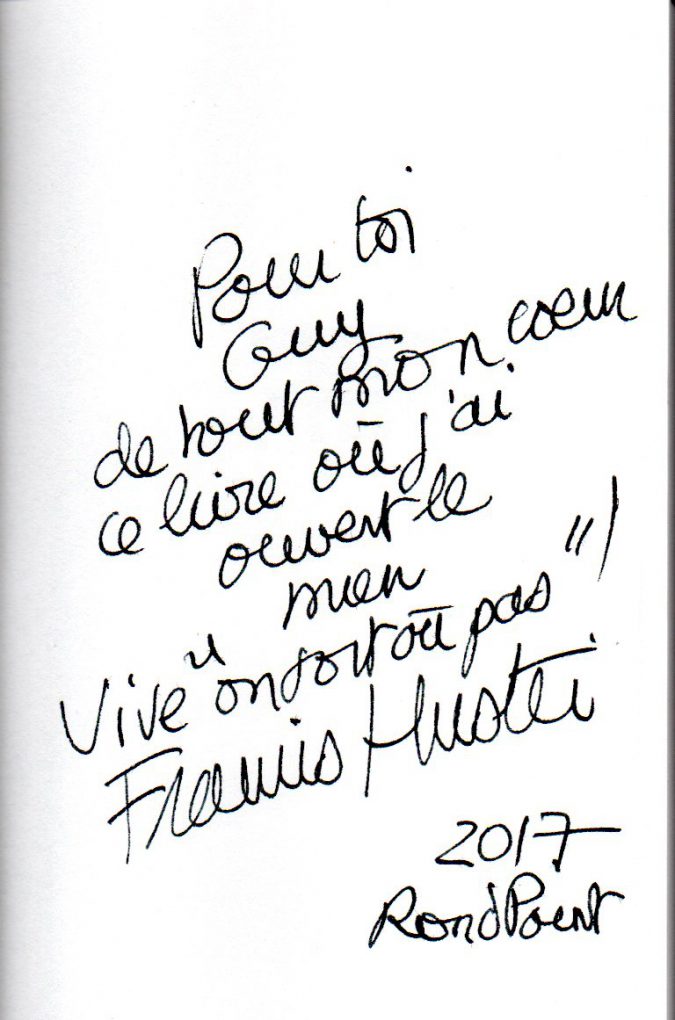 Pour toi
Guy
de tout mon coeur
ce livre où j'ai
ouvert le
mien
Vive "on sort où pas" !
Francis Huster
2017
Rond Point